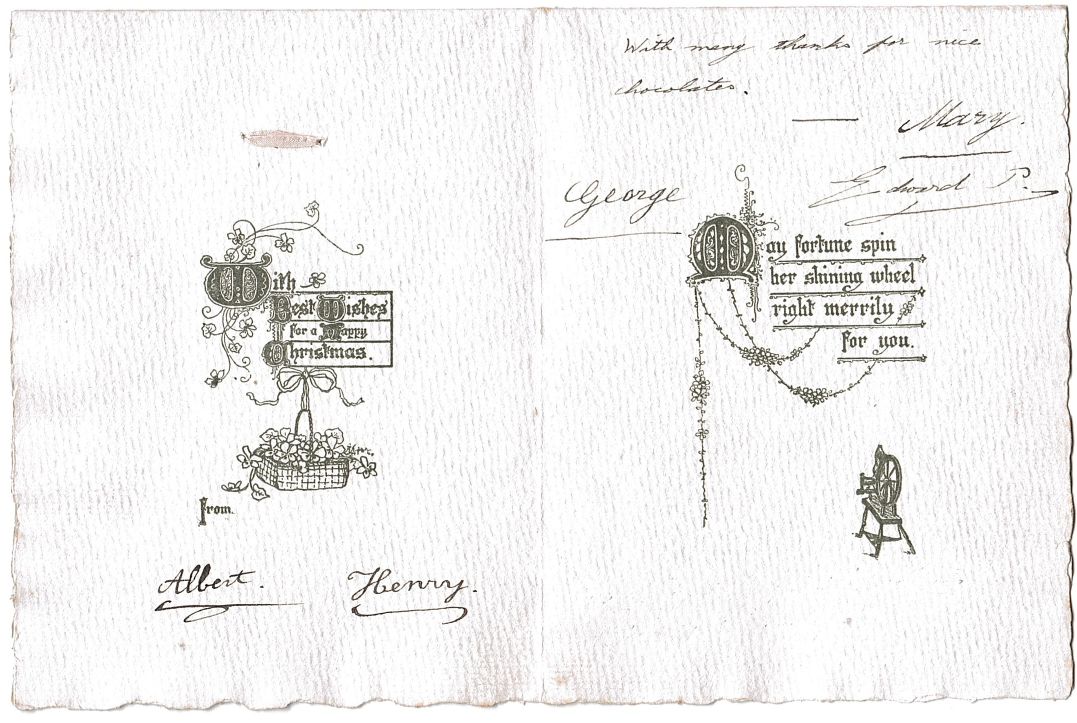 With
Best Wishes
for a Happy
Christmas.
From.
Albert. Henry.
With many thanks for nice
chocolates.
Mary.
George
Edward P.
May fortune spin
her shining wheel
right merrily
for you.